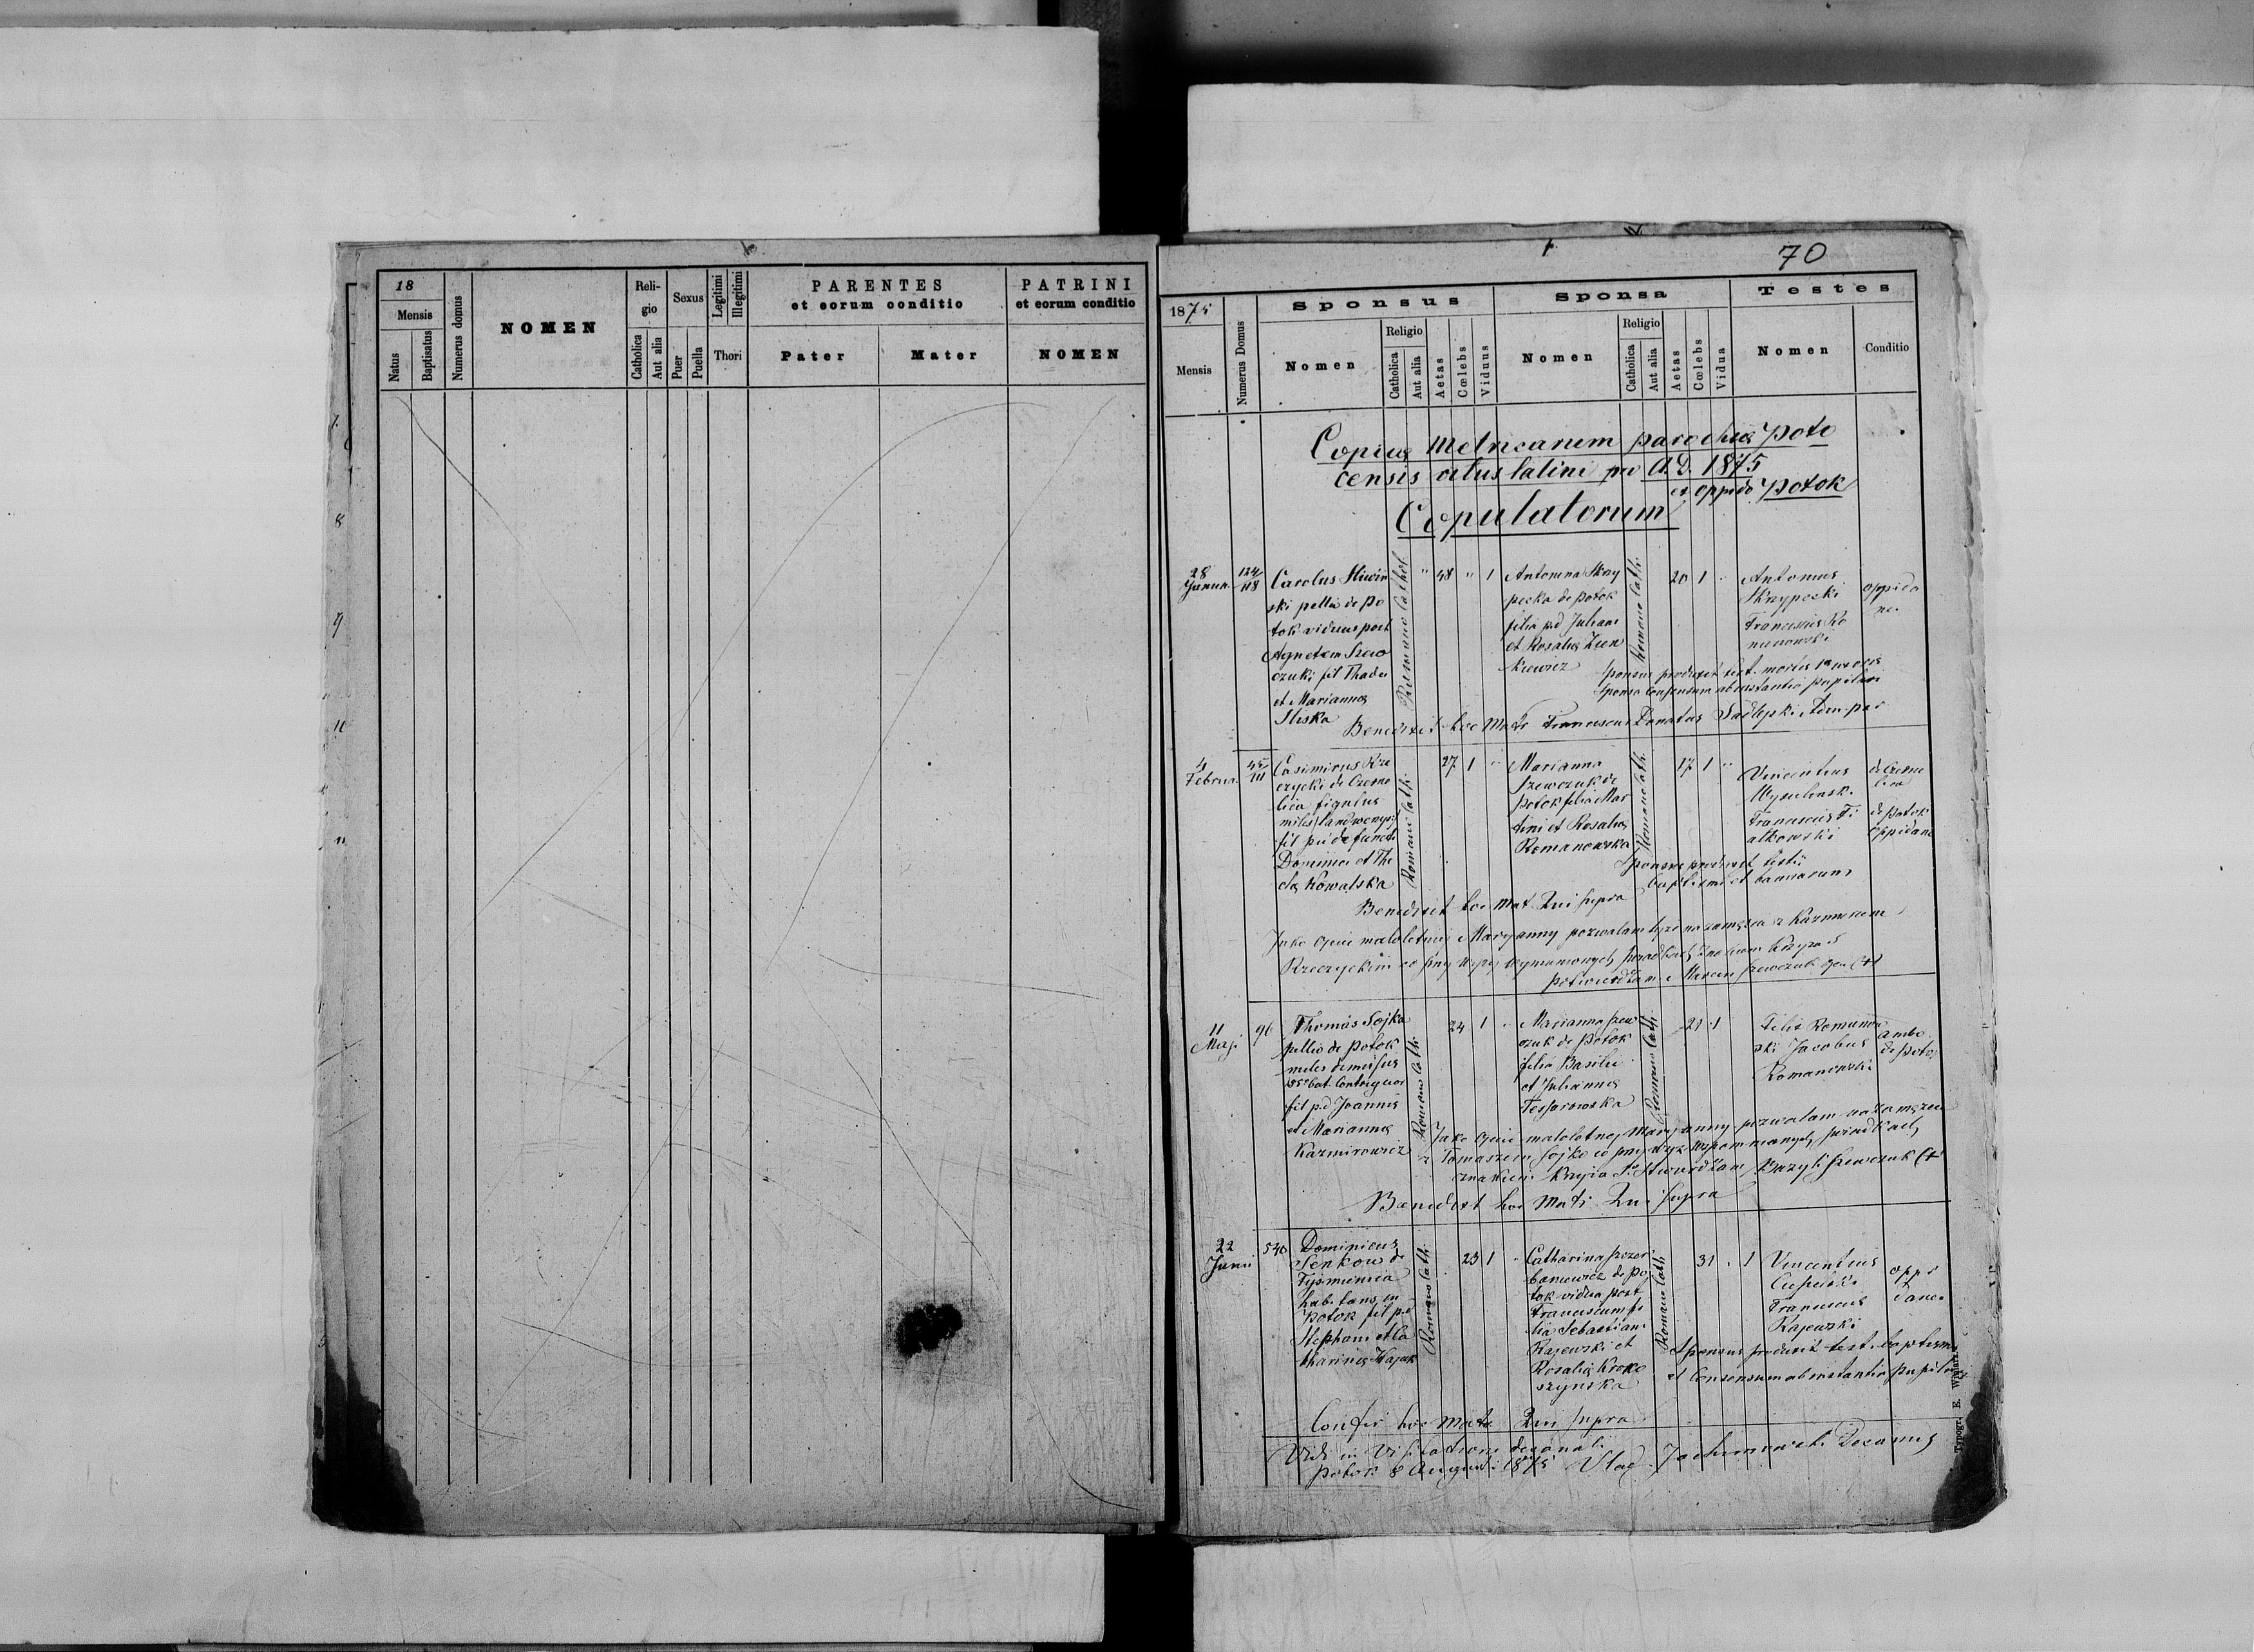 18
Mensis
Natus
Baptisatus
Numerus domus
NOMEN
Reli-
gio
Catholica
Aut alia
Sexus
Puer
Puella
Legitimi
Illegitimi
Thori
PARENTES
et eorum conditio
Pater
Mater
PATRINI
et eorum conditio
NOMEN
8
9
10
11
70
1875
Mensis
Numerus Domus
Sponsus
Nomen
Religio
Catholica
Aut alia
Aetas
Cœlebs
Viduus
Sponsa
Nomen
Religio
Catholica
Aut alia
Aetas
Cœlebs
Vidua
Testes
Nomen
Conditio
Copiæ Metricarum parochiæ Poto
censis ritus latini pro A.D. 1875
ex oppido Potok
Copulatorum
28
Januar.
124/118
Carolus Sliwin
ski pellio de Po
tok viduus post
Agnetem Szew
czuki fil Thadei
et Mariannæ
Sliska
Romano cathol.
" 48 " 1
Antonina Skrzy
pecka de Potok
filia pd Juliani
et Rosaliæ Zien
kiewicz
Romano cath.
20 1 "
Antonius
Skrzypecki
Franciscus Ro
manowski
oppida
nei
Sponsus produxit test. mortis 1æ uxoris
Sponsa consensum ab instantia pupilari
Benedixit hoc Matr Franciscus Donatus Sadlepki
4
Februar.
45/111
Casimirus Rze
czycki de Czerne
lica figulus
miles landwerysi
fil pie defuncti
Dominici et The
clæ Kowalska
Romano cath.
27 1 "
Marianna
Szewczuk de
Potok filia Mar
tini et Rosaliæ
Romanowska
Romano cath.
17 1 "
Vincentius
Wysulinski
Franciscus Fi
alkowski
de Czerne
lica
de Potok
oppidane
Sponsus produxit testii
baptismi et bannorum
Benedixit hoc Mat. Qui supra
Jako ojciec małoletniej Maryanny pozwalam tejże na zamęście z Kazimierzem
Rzeczyckim co przy wyżej wymienionych świadkach znakiem Krzyża S
potwierdzam Marcin Szewczuk ojciec (+)
11
Maji
96
Thomas Sojka
pellio de Potok
miles dimissus
fil pd Joannis
et Mariannæ
Kazmirowicz
Romano cath.
24 1 "
Marianna Szew
czuk de Potok
filia Basilii
et Juliannæ
Tessarowska
Romano cath.
21 1
Felix Romanow
ski Jacobus
Romanowski
ambo
de Potok
Jako ojciec małoletnej Maryanny pozwalam na zamęście
z Tomaszem Sojko co przy wyż wspomnianych świadkach
znakiem Krzyża S. stwierdzam Bazyli Szewczuk (+)
Benedixit hoc Matr Qui supra
22
Junii
540
Dominicus
Senkow de
Tysmienica
habitans in
Potok fil pd
Stephani et Ca
tharinæ Hajuk
Romano cath.
23 1 "
Catharina Szczer
baniewicz de Po
tok vidua post
Franciscum fi
lia Sebastiani
Rajewski et
Rosaliæ Kroko
szynska
Romano cath
31 . 1
Vincentius
Ciepielski
Franciscus
Rajewski
oppi
danei
Sponsus produxit test. baptismi
et Consensum ab instantia pupilari
hoc Matr Qui supra
Vidi in Visitatione decanali
Potok 8 Augusti 1875 Vlad. Jachimowski Decanus
Typogr. E. Winiarz.